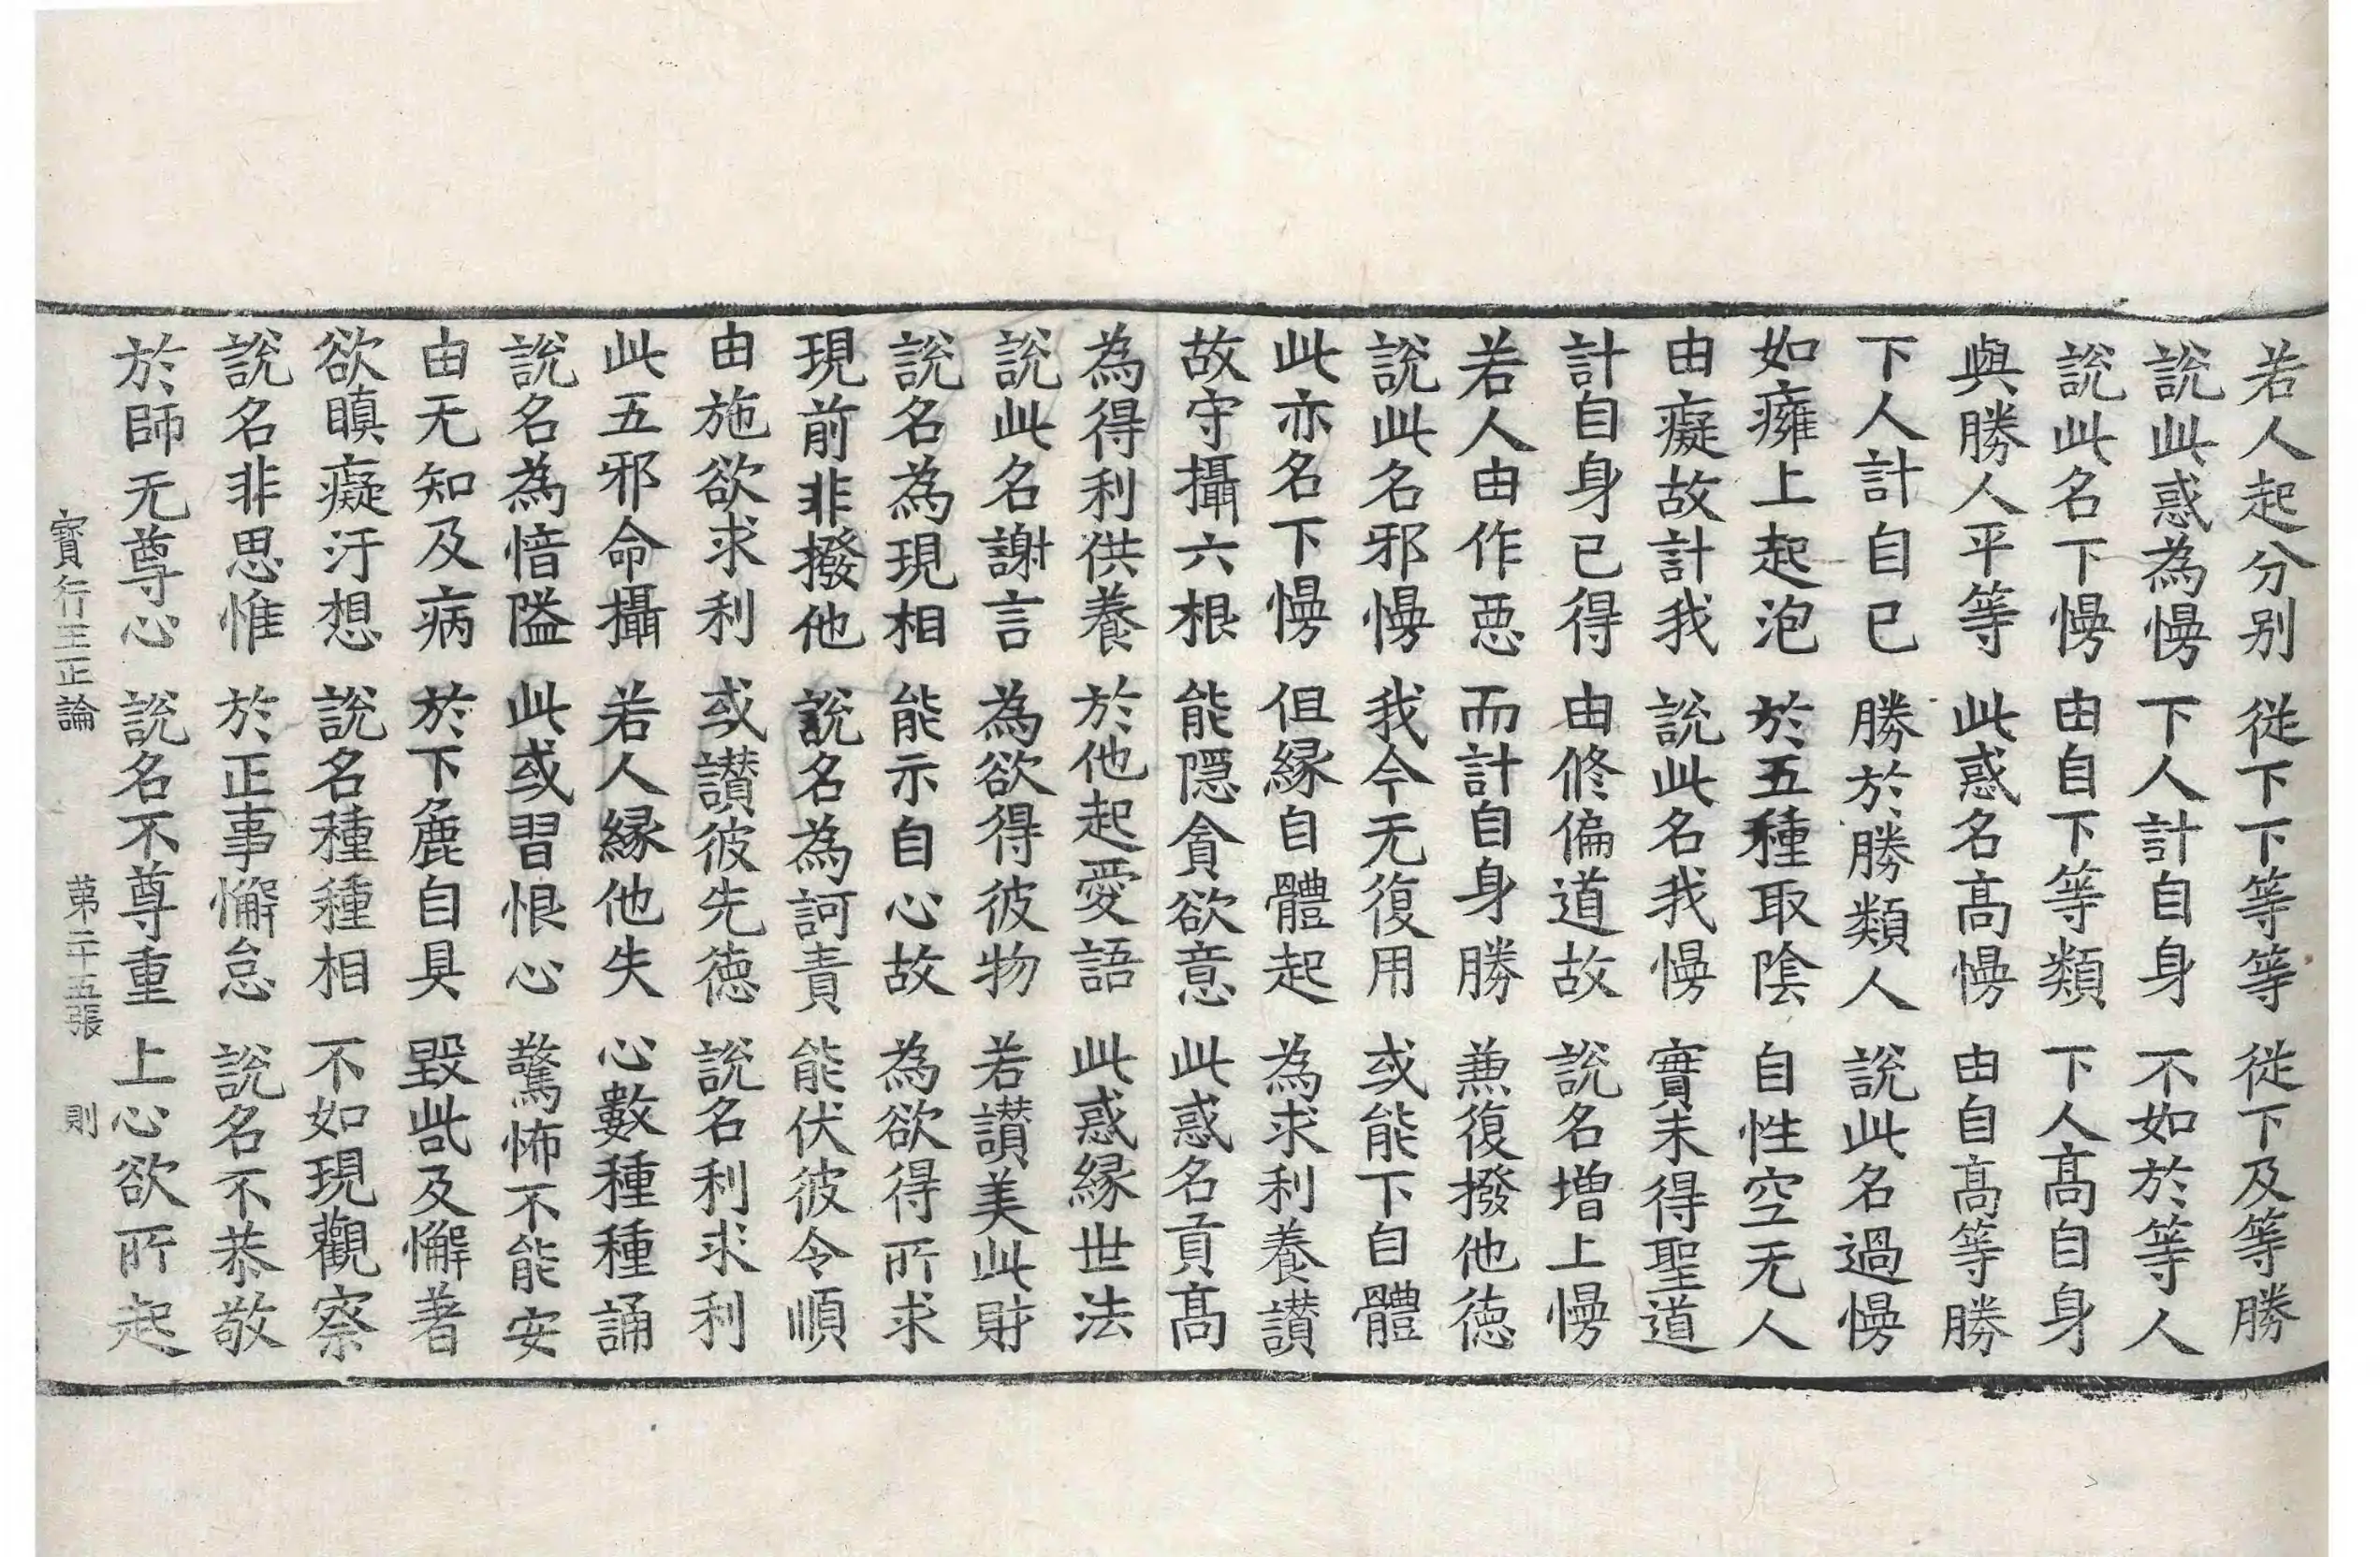 若人起分别　從下下等等　從下及等勝
說此惑為慢　下人計自身　不如於等人
說此名下慢　由自下等類　下人髙自身
與勝人平等　此惑名髙慢　由自髙等勝
下人計自已　勝於勝類人　說此名過慢
如癰上起泡　於五種取陰　自性空无人
由癡故計我　說此名我慢　實未得聖道
計自身已得　由修偏道故　說名增上慢
若人由作悪　而計自身勝　兼復撥他徳
說此名邪慢　我今无復用　或能下自體
此亦名下慢　但縁自體起　為求利養讃
故守攝六根　能隱貪欲意　此惑名貢髙
為得利供養　於他起愛語　此惑縁世法
說此名謝言　為欲得彼物　若讃美此財
說名為現相　能示自心故　為欲得所求
現前非撥他　說名為訶責　能伏彼令順
由施欲求利　或讃彼先徳　說名利求利
此五邪命攝　若人縁他失　心數種種誦
說名為愔隘　此或習恨心　驚怖不能安
由无知及病　於下麁自具　毀呰及懈著
欲瞋癡汙想　說名種種相　不如現觀察
說名非思惟　於正事懈怠　說名不恭敬
於師无尊心　說名不尊重　上心欲所起
寳行王正論　第二十五張　則